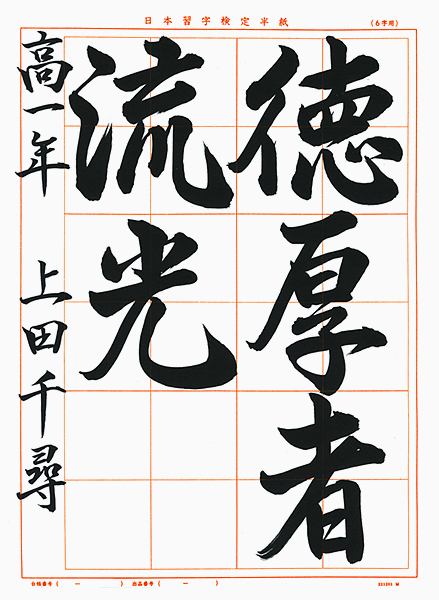 日本習字検定半紙
(6字用)
徳厚者
流光
高一年 上田千尋
台帳番号 ( ー )
出品番号 ( ー )